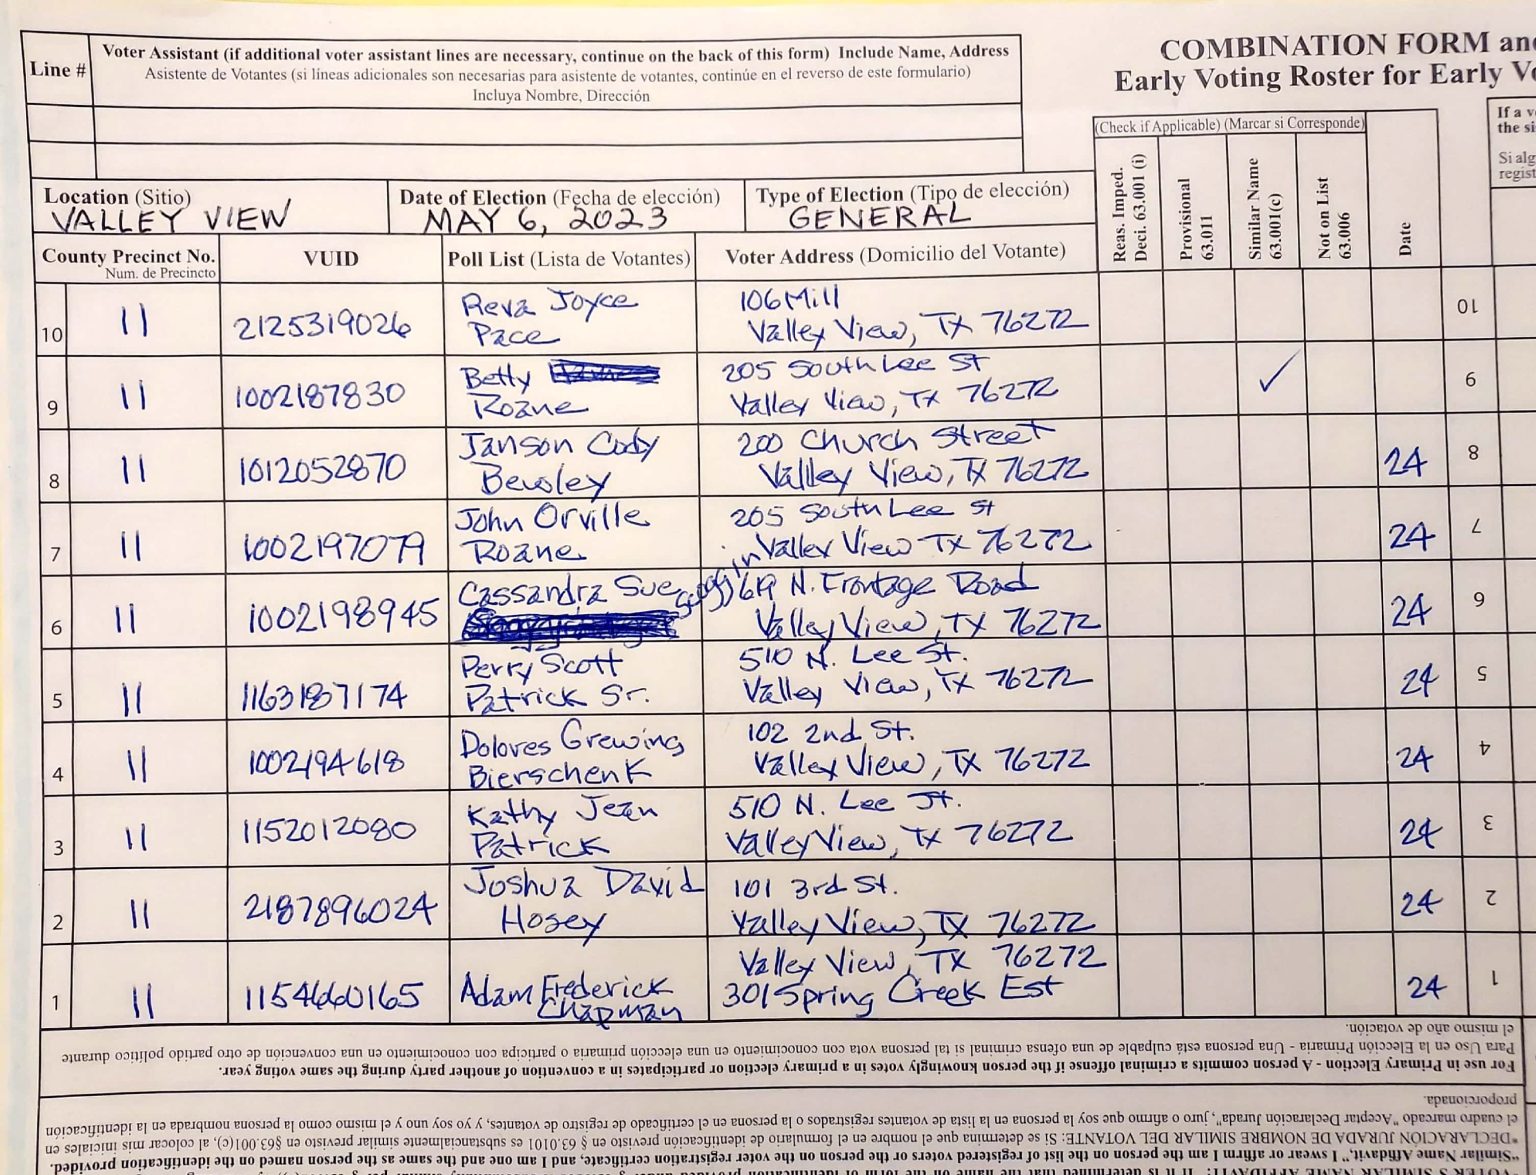 Line #
Voter Assistant (if additional voter assistant lines are necessary, continue on the back of this form) Include Name, Address
Asistente de Votantes (si líneas adicionales son necesarias para asistente de votantes, continúe en el reverso de este formulario)
Incluya Nombre, Dirección
COMBINATION FORM and
Early Voting Roster for Early
(Check if Applicable) (Marcar si Corresponde)
Reas. Imped.
Deci. 63.001 (i)
Provisional
63.011
Similar Name
63.001(c)
Not on List
63.006
Date
If a
the
Si alg
regist
Location (Sitio)
VALLEY VIEW
Date of Election (Fecha de elección)
MAY 6, 2023
Type of Election (Tipo de elección)
GENERAL
County Precinct No.
Num. de Precincto
VUID
Poll List (Lista de Votantes)
Voter Address (Domicilio del Votante)
10 11 2125319026 Reva Joyce
Pace
106 Mill
Valley View, TX 76272
10
9 11 1002187830 Betty
Roane
205 South Lee St
Valley View, TX 76272
✓ 9
8 11 1012052870 Janson Cody
Bewley
200 Church Street
Valley View, TX 76272
24 8
7 11 1002197079 John Orville
Roane
205 South Lee St
Valley View TX 76272
24 7
6 11 1002198945 Cassandra Sue Scoggin
619 N. Frontage Road
Valley View, TX 76272
24 6
5 11 1163187174 Perry Scott
Patrick Sr.
510 N. Lee St.
Valley View, TX 76272
24 5
4 11 1002194618 Dolores Grewing
Bierschenk
102 2nd St.
Valley View, TX 76272
24 4
3 11 1152012080 Kathy Jean
Patrick
510 N. Lee St.
Valley View, TX 76272
24 3
2 11 2187896024 Joshua David
Hosey
101 3rd St.
Valley View, TX 76272
24 2
1 11 1154660165 Adam Frederick
Chapman
Valley View, TX 76272
301 Spring Creek Est
24 1
For use in Primary Election - A person commits a criminal offense if the person knowingly votes in a primary election or participates in a convention of another party during the same voting year.
Para Uso en la Elección Primaria - Una persona está culpable de una ofensa criminal si tal persona vota con conocimiento en una elección primaria o participa con conocimiento en una convención de otro partido político durante
el mismo año de votación.
"Similar Name Affidavit," I swear or affirm I am the person on the list of registered voters or the person on the voter registration certificate, and I am one and the same as the person named on the identification provided.
*DECLARACIÓN JURADA DE NOMBRE SIMILAR DEL VOTANTE: Si se determina que el nombre en el formulario de identificación provisto en § 63.0101 es substancialmente similar previsto en §63.001(c), al colocar mis iniciales en
el cuadro marcado "Aceptar Declaración Jurada", juro o afirmo que soy la persona en la lista de votantes registrados o la persona en el certificado de registro de votantes, y yo soy uno y el mismo como la persona nombrada en la identificación
proporcionada.